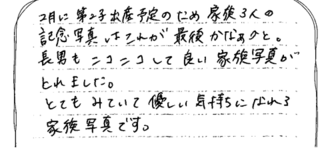 2月に第2子出産予定のため家族3人の
記念写真はこれが最後かなぁと。
長男もニコニコして良い家族写真が
とれました。
とてもみていて優しい気持ちになれる
家族写真です。